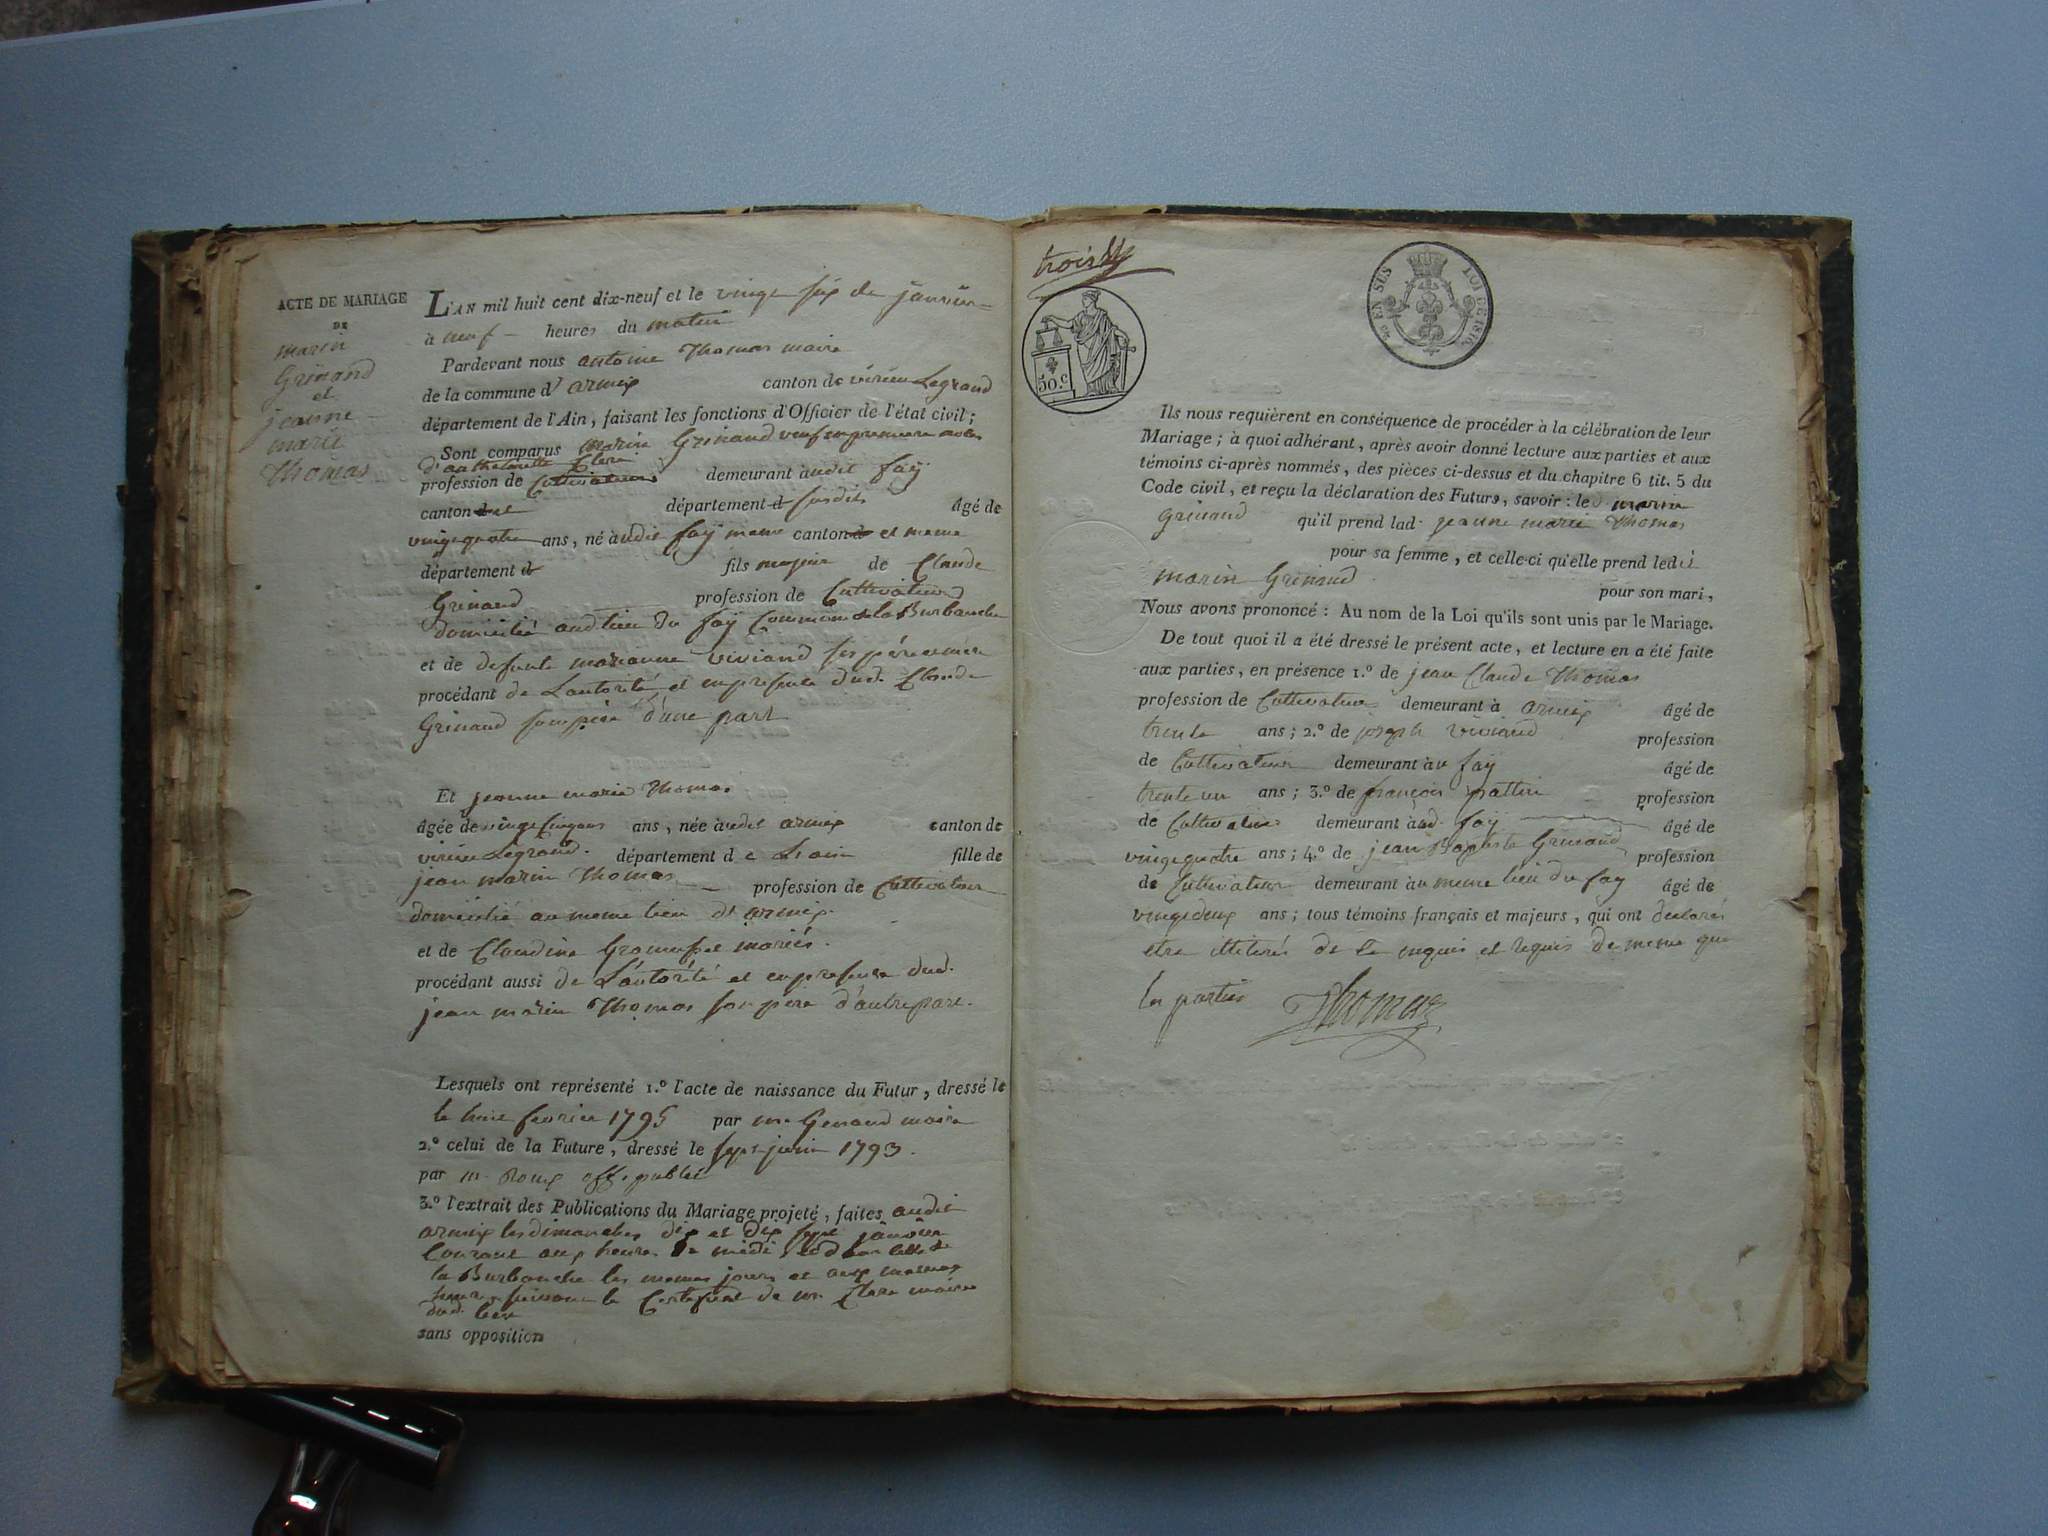 ACTE DE MARIAGE
DE
marin
Grinand
et
jeanne
marie
Thomas
L'AN mil huit cent dix-neuf et le vingt six de janvier
à neuf heures du matin
Pardevant nous antoine Thomas maire
de la commune d'armix canton de virieu Legrand
département de l'Ain, faisant les fonctions d'Officier de l'état civil;
Sont comparus marin Grinand veuf en premiere noces
d'anthelmette Clerc
profession de Cultivateur demeurant audit faÿ
canton département susdits âgé de
vingt quatre ans, né audit faÿ meme canton et meme
département fils majeur de Claude
Grinand profession de Cultivateur
domicilié audit lieu du faÿ Commune de la Burbanche
et de defunte marianne viviand ses père et mere
procédant de L'autorité et en presence dud. Claude
Grinand son père d'une part
Et jeanne marie Thomas
âgée de vingt cinq ans, née audit armix canton de
virieu Legrand. département de L'ain fille de
jean marin Thomas profession de Cultivateur
domicilié au meme lieu d'armix.
et de Claudine mariés.
procédant aussi de L'autorité et en presence dud.
jean marin Thomas son père d'autre part.
Lesquels ont représenté 1.º l'acte de naissance du Futur, dressé le
le huit fevrier 1795 par mr. Genand maire
2.º celui de la Future, dressé le sept juin 1793.
par m. Roux off. public
3.º l'extrait des Publications du Mariage projeté, faites audit
armix les dimanches dix et dix sept janvier
Courant aux heures de midi et dans celle de
la Burbanche les memes jours et aux memes
heures suivant le Certificat de mr Clerc maire
dud. lieu
sans opposition
trois
50.c
EN SUS LOI DE 1816.
Ils nous requièrent en conséquence de procéder à la célébration de leur
Mariage; à quoi adhérant, après avoir donné lecture aux parties et aux
témoins ci-après nommés, des pièces ci-dessus et du chapitre 6 tit. 5 du
Code civil, et reçu la déclaration des Futurs, savoir: led marin
Grinand qu'il prend lad. jeanne marie Thomas
pour sa femme, et celle-ci qu'elle prend ledit
marin Grinand pour son mari,
Nous avons prononcé: Au nom de la Loi qu'ils sont unis par le Mariage.
De tout quoi il a été dressé le présent acte, et lecture en a été faite
aux parties, en présence 1.º de jean Claude Thomas
profession de Cultivateur demeurant à armix âgé de
trente ans; 2.º de joseph viviand profession
de Cultivateur demeurant au faÿ âgé de
trente un ans; 3.º de françois pattin profession
de Cultivateur demeurant aud. faÿ âgé de
vingt quatre ans; 4.º de jean Baptiste Grinand profession
de Cultivateur demeurant au meme lieu du faÿ âgé de
vingt deux ans; tous témoins français et majeurs, qui ont declarés
etre illiterés de ce enquis et requis de meme que
les parties Thomas